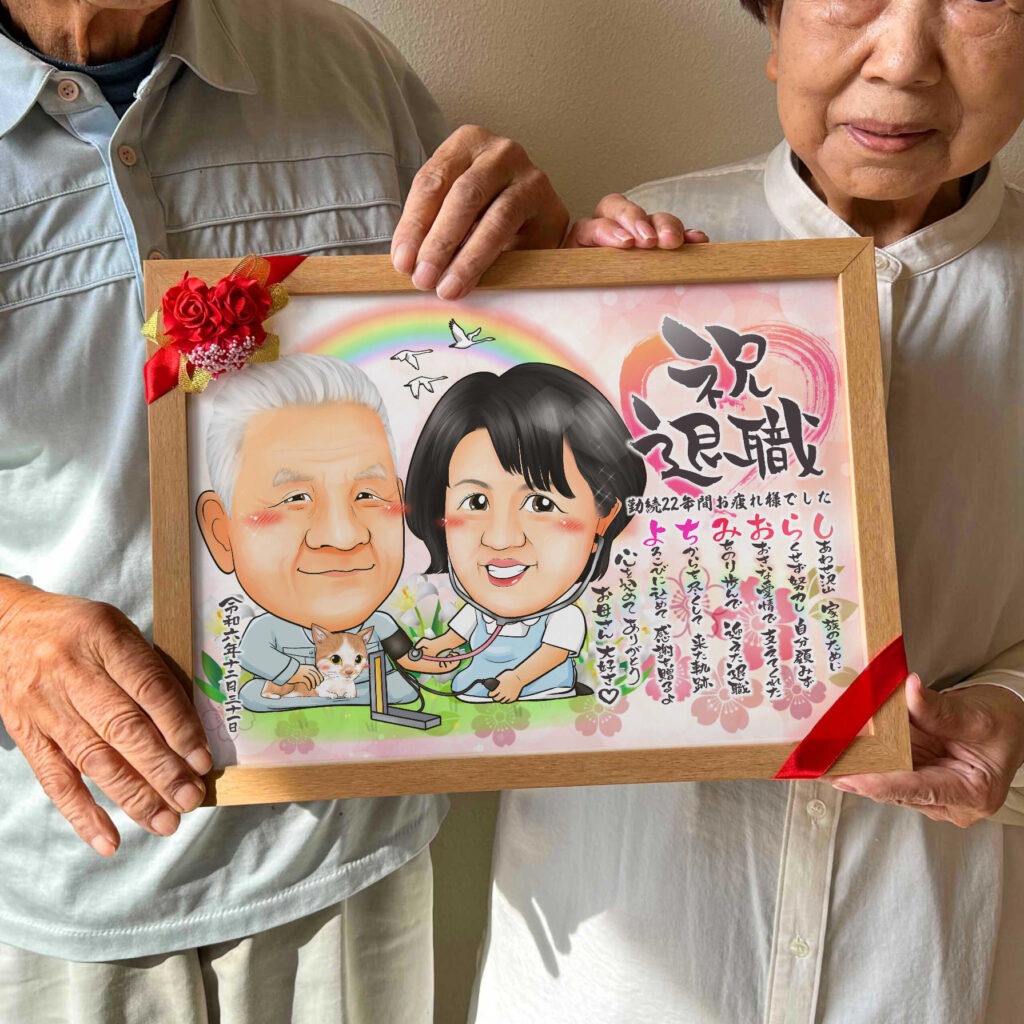 祝
退職
勤続22年間お疲れ様でした
しあわせ沢山 家族のために
らくせず努力し 自分顧みず
おおきな愛情で 支えてくれた
みちのり歩んで 迎えた退職
ちからを尽くして 来た軌跡
よろこびに込めて 感謝を贈るよ
心を込めて ありがとう
お母さん大好き♡
令和六年十二月三十一日